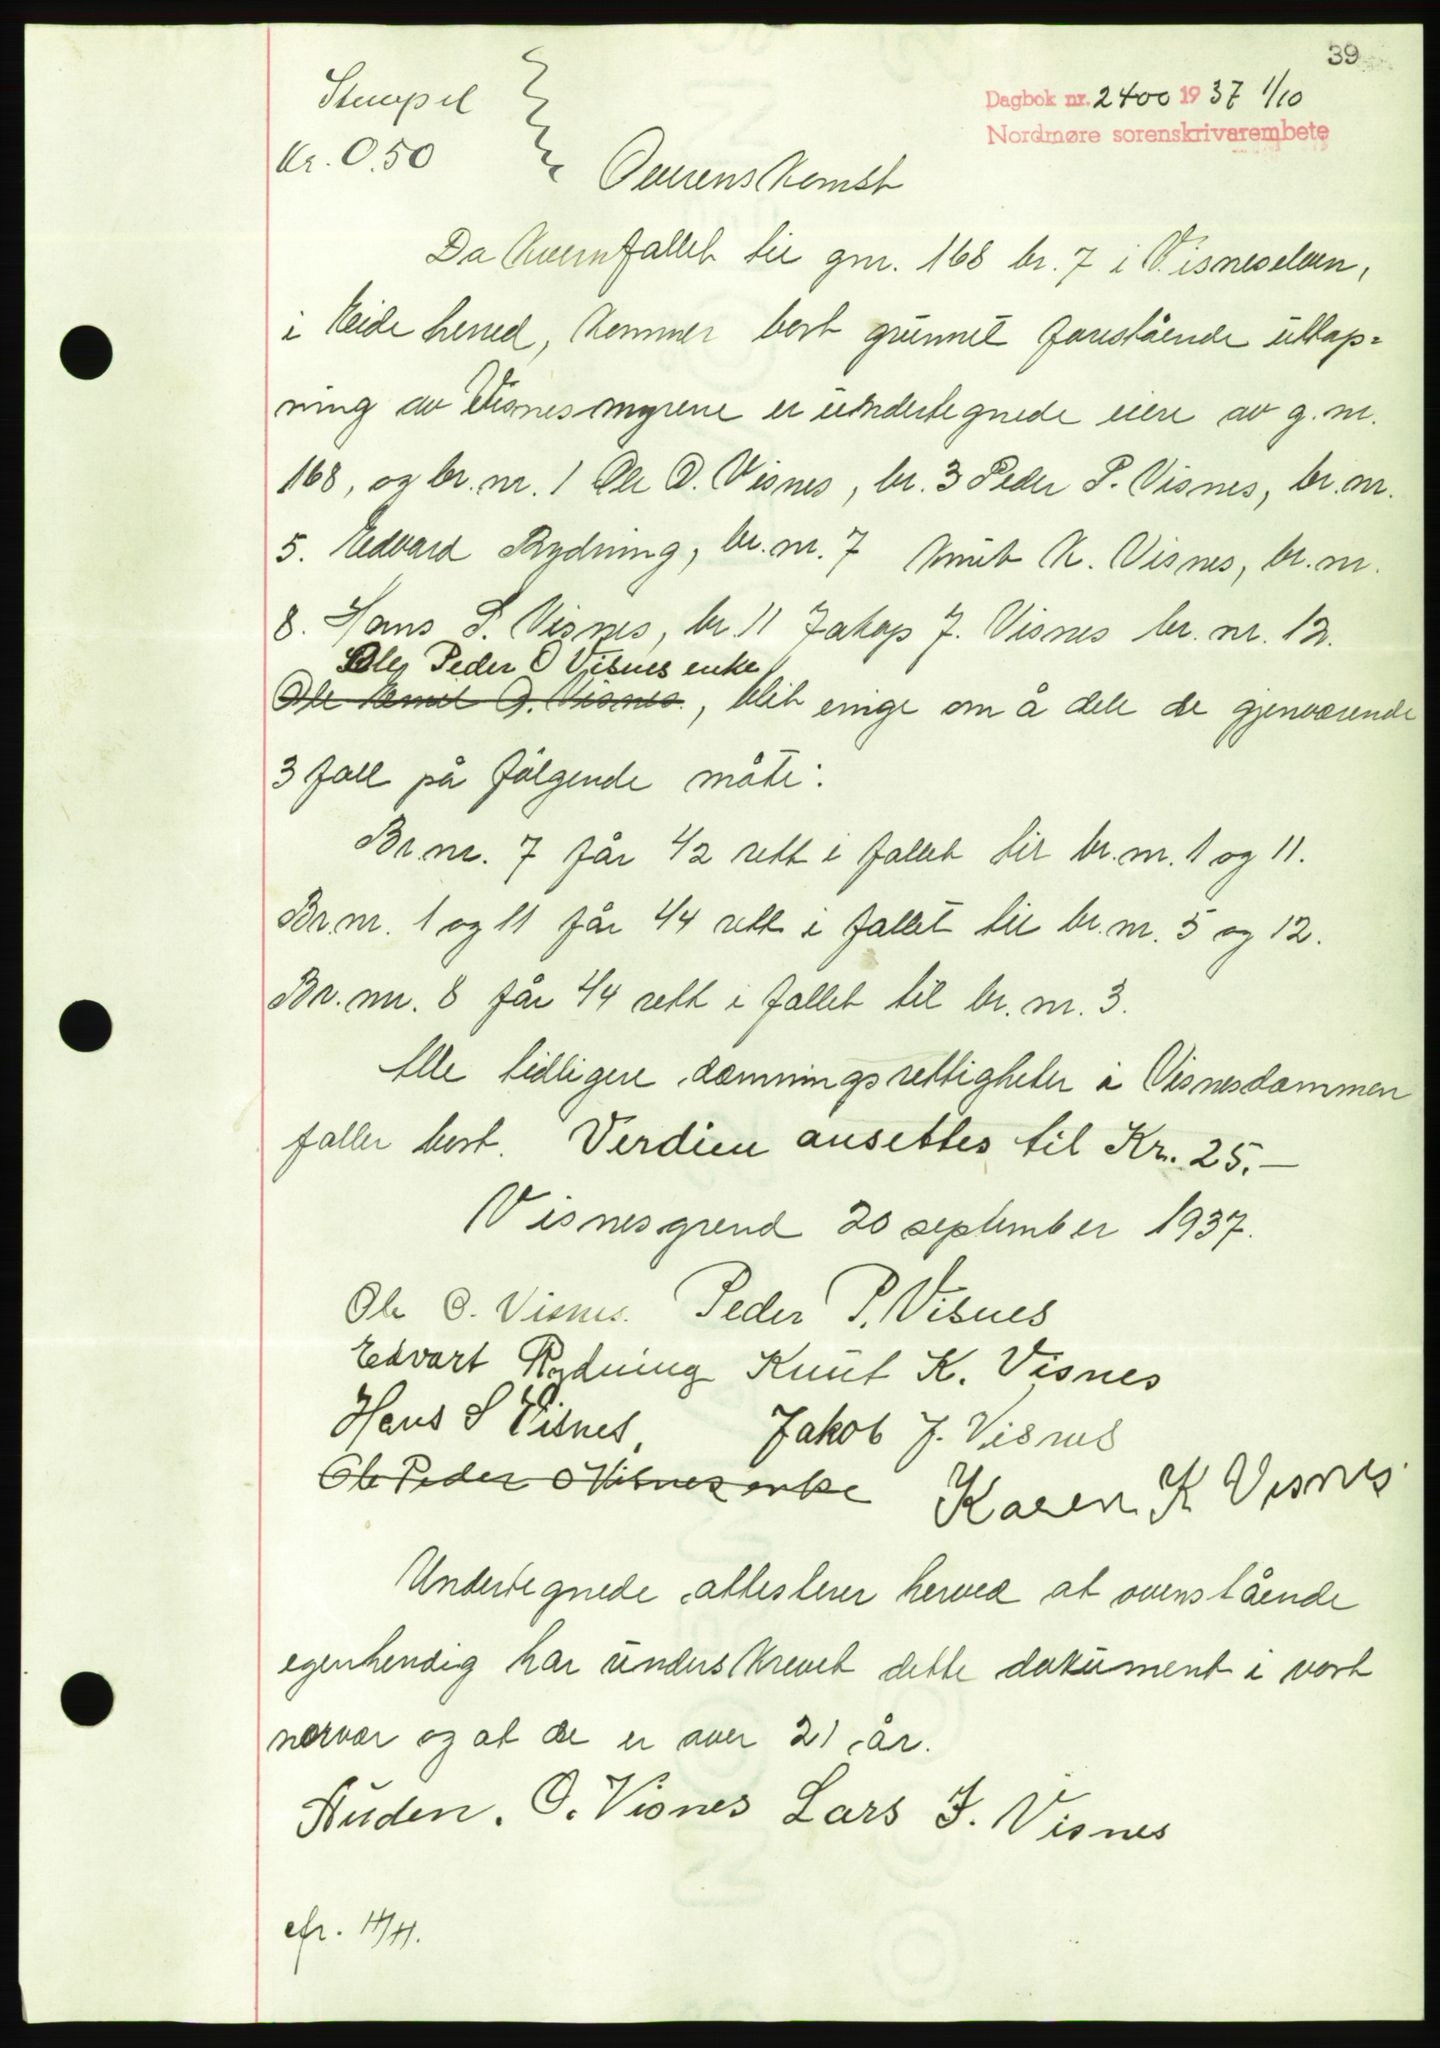 39
Stempel
Kr. 0.50
Dagbok nr. 2400 1937 1/10
Nordmøre sorenskrivarembete
Overenskomst
Da kvernfallet til gnr. 168 br. 7 i Visneselven,
i Eide herred, kommer bort grunnet forestående uttap=
ning av Visnesmyrene er undertegnede eiere av g.nr.
168, og br.nr. 1 Ole O. Visnes, br. 3 Peder P. Visnes, br.nr.
5. Edvard Rydning, br.nr. 7 Knut K. Visnes, br.nr.
8. Hans S. Visnes, br. 11 Jakop J. Visnes br. nr. 12.
Ole Peder O Visnes enke
Ole Emil O. Visnes, blit enige om å dele de gjenværende
3 fall på følgende måte:
Br.nr. 7 får 1/2 rett i fallet til br.nr. 1 og 11.
Br.nr. 1 og 11 får 1/4 rett i fallet til br.nr. 5 og 12.
Br.nr. 8 får 1/4 rett i fallet til br.nr. 3.
Alle tidligere demningsrettigheter i Visnesdammen
faller bort. Verdien ansettes til Kr. 25.—
Visnesgrend 20 september 1937.
Ole O. Visnes. Peder P. Visnes
Edvart Rydning Knut K. Visnes
Hans S Visnes, Jakob J. Visnes
Ole Peder O Visnes enke Karen K Visnes
Undertegnede attesterer herved at ovenstående
egenhendig har underskrevet dette dokument i vort
nærvær og at de er over 21 år.
Auden. O. Visnes Lars J. Visnes